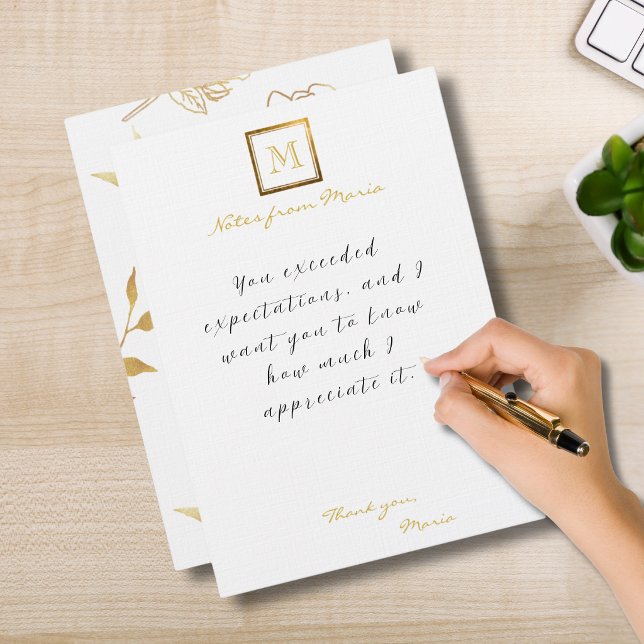 M
Notes from Maria
You exceeded
expectations, and I
want you to know
how much I
appreciate it.
Thank you,
Maria